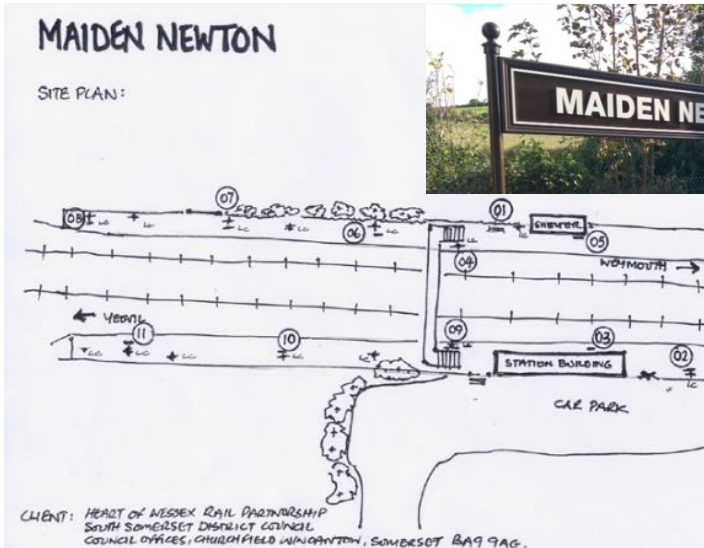 MAIDEN NEWTON
SITE PLAN:
MAIDEN NE
07
08
LC
LC
LC
LC
06
01
LC
SHELTER
05
LC
04
WEYMOUTH
YEOVIL
11
10
09
03
02
LC
LC
LC
LC
LC
LC
STATION BUILDING
LC
CAR PARK
CLIENT: HEART OF WESSEX RAIL PARTNERSHIP
SOUTH SOMERSET DISTRICT COUNCIL
COUNCIL OFFICES, CHURCHFIELD WINCANTON, SOMERSET BA9 9AG.